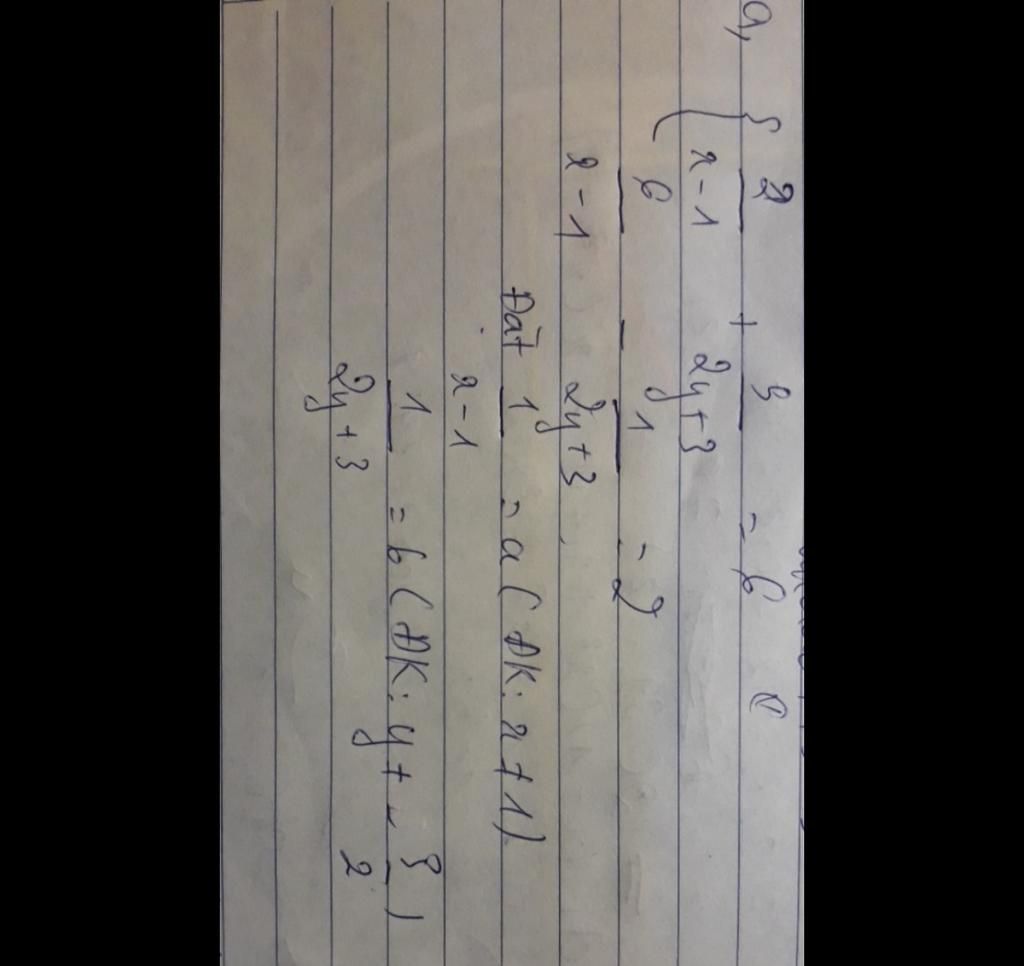 a, { 2/(x-1) + 3/(2y+3) = 6
6/(x-1) - 1/(2y+3) = 2
Đặt 1/(x-1) = a (ĐK: x ≠ 1)
1/(2y+3) = b (ĐK: y ≠ -3/2)